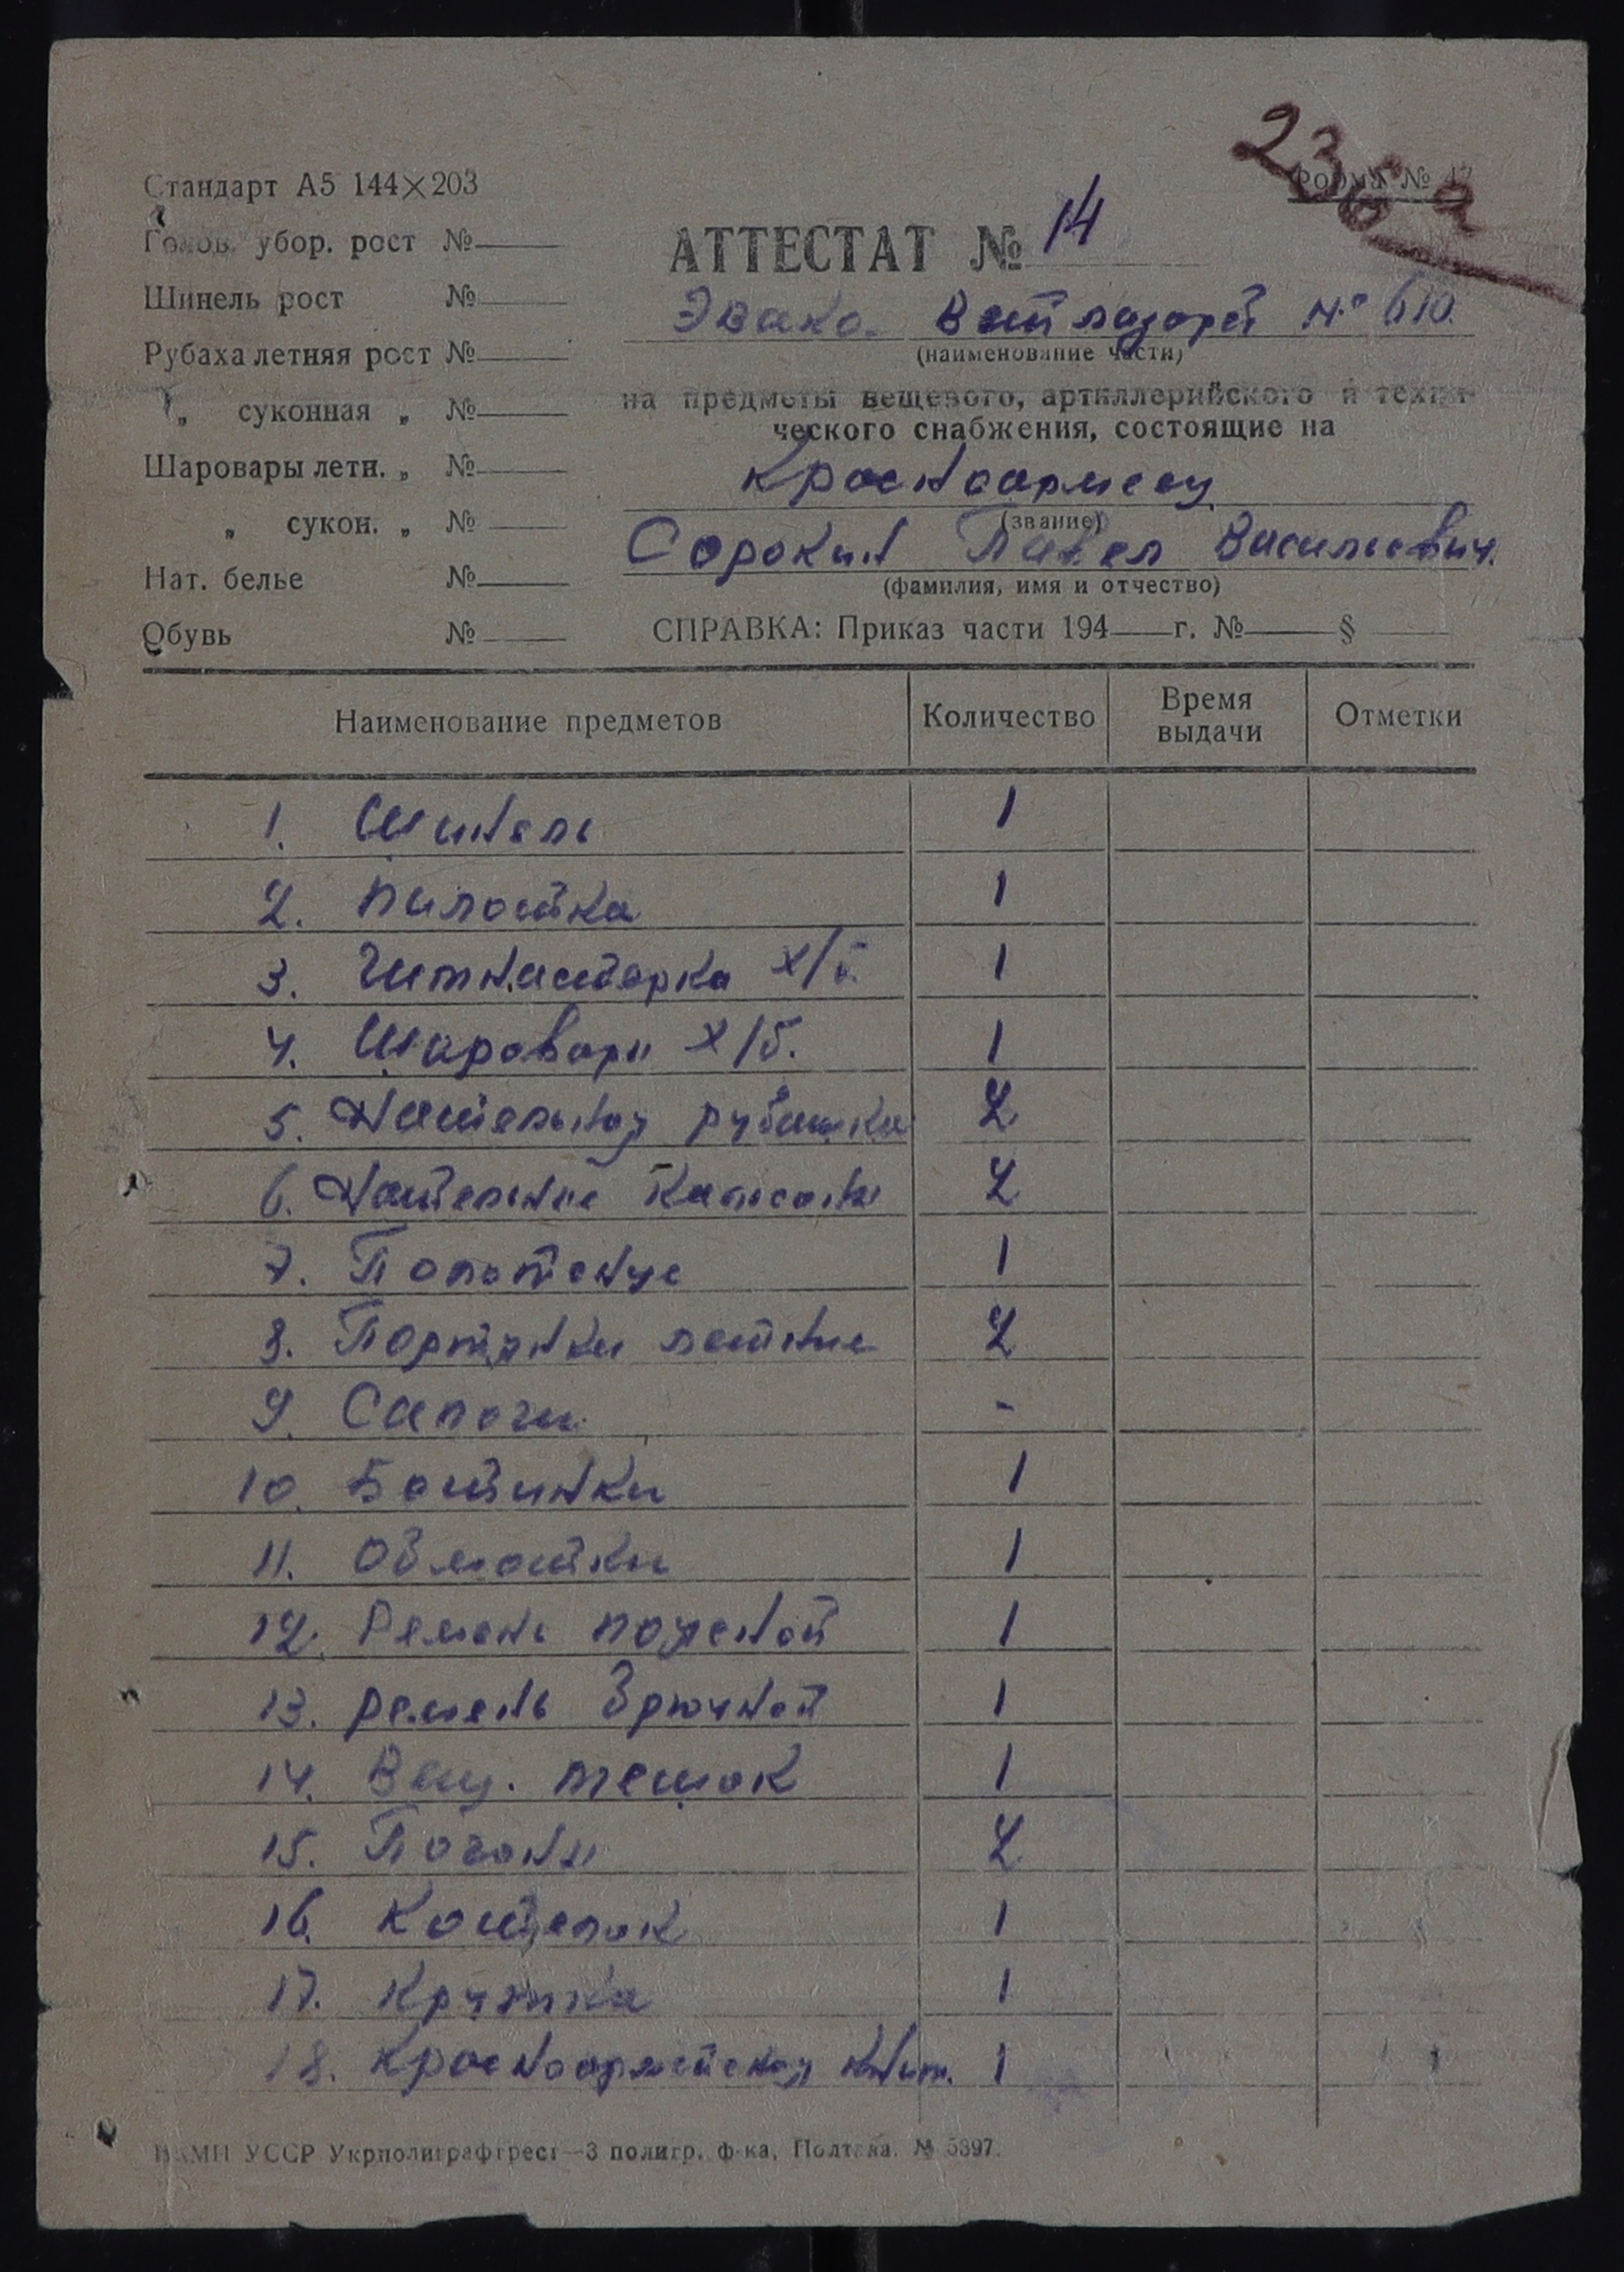 236 а
Стандарт А5 144×203
Форма № 17
Голов. убор. рост №
АТТЕСТАТ № 14
Шинель рост №
Эвако. Ветлазарет № 610.
Рубаха летняя рост №
(наименование части)
„ суконная „ №
на предметы вещевого, артиллерийского и техни-
ческого снабжения, состоящие на
Шаровары летн. „ №
Красноармеец
(звание)
„ сукон. „ №
Сорокин Павел Васильевич.
Нат. белье №
(фамилия, имя и отчество)
Обувь №
СПРАВКА: Приказ части 194 г. № §
Наименование предметов Количество Время выдачи Отметки
1. Шинель 1
2. Пилотка 1
3. Гимнастерка х/б. 1
4. Шаровары х/б. 1
5. Нательная рубашка 2
6. Нательные кальсоны 2
7. Полотенце 1
8. Портянки летние 2
9. Сапоги -
10. Ботинки 1
11. Обмотки 1
12. Ремень поясной 1
13. ремень брючной 1
14. Вещ. мешок 1
15. Погоны 2
16. Котелок 1
17. Кружка 1
18. Красноармейская книж. 1
УССР Укрполиграфтрест—3 полигр. ф-ка, Полтава. № 5397.